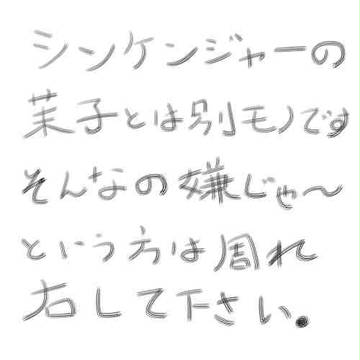 シンケンジャーの
茉子とは別モノです
そんなの嫌じゃ〜
という方は周れ
右して下さい。